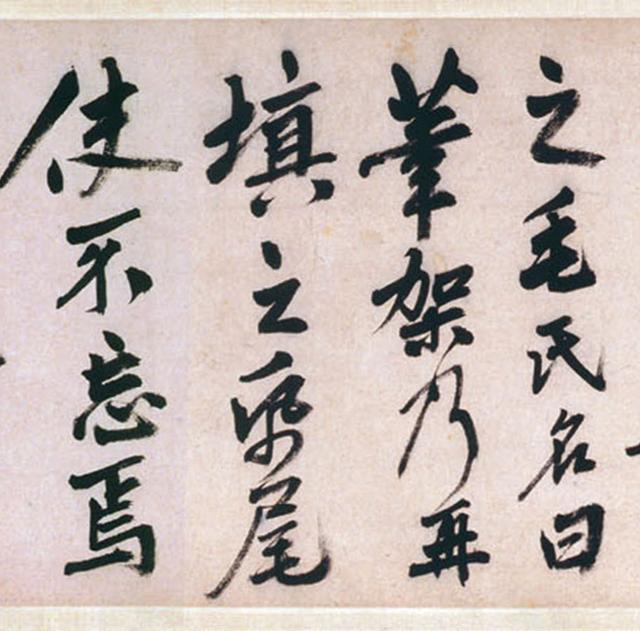 之毛氏名曰
筆架乃再
填之帋尾
使不忘焉